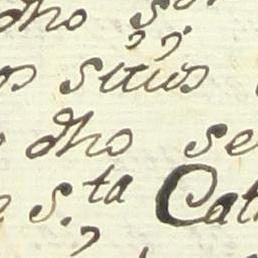 dho s.ᵒʳ
os sitios
dho se
s.ᵗᵃ Cat